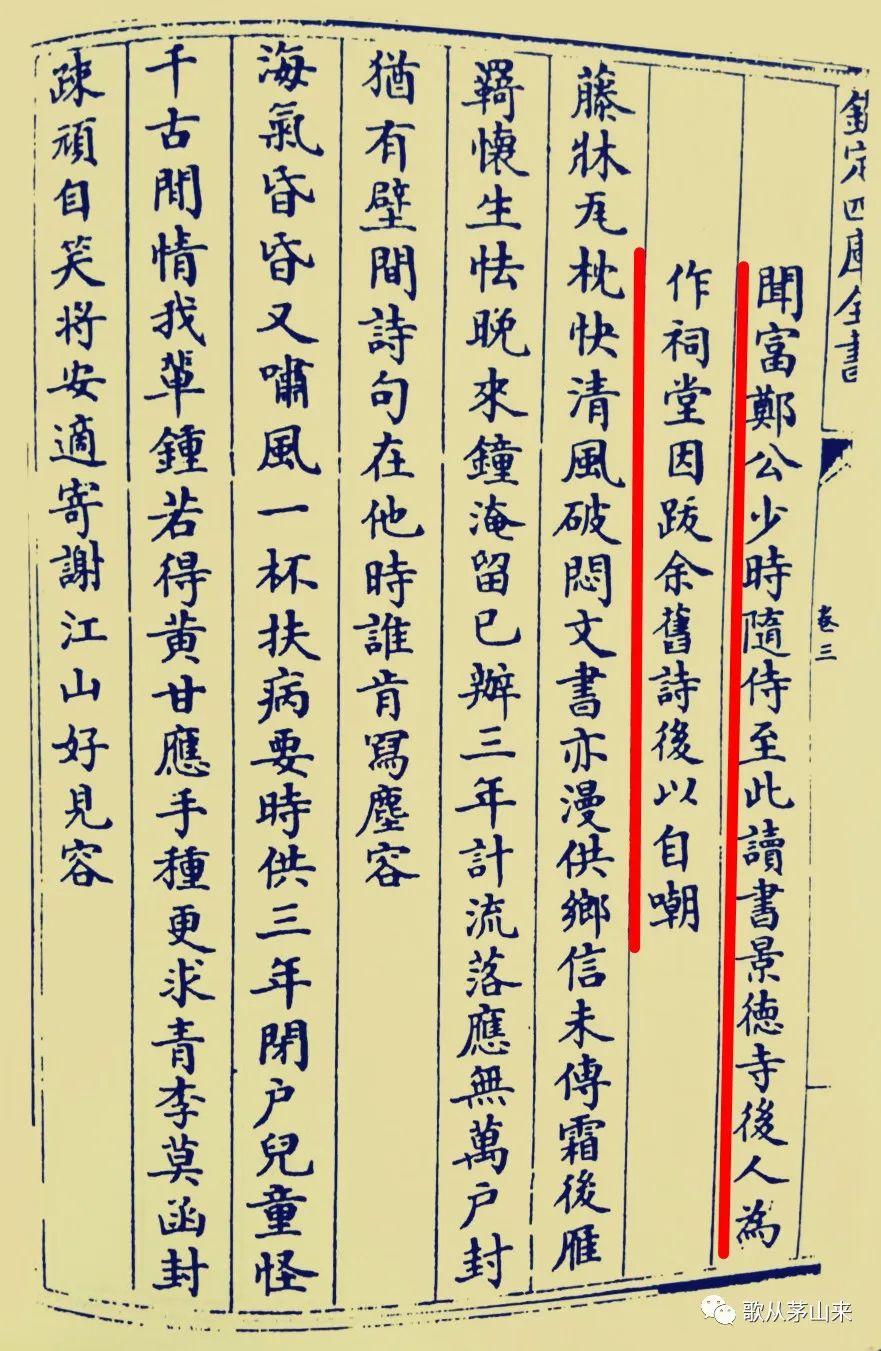 欽定四庫全書
卷三
聞富鄭公少時隨侍至此讀書景徳寺後人為
作祠堂因䟦余舊詩後以自嘲
藤牀瓦枕快清風破悶文書亦漫供鄉信未傳霜後雁
羇懷生怯晚來鐘淹留已辦三年計流落應無萬户封
猶有壁間詩句在他時誰肯冩塵容
海氣昏昏又嘯風一杯扶病要時供三年閉户兒童怪
千古閒情我輩鍾若得黄甘應手種更求青李莫函封
疎頑自笑将安適寄謝江山好見容
歌从茅山来